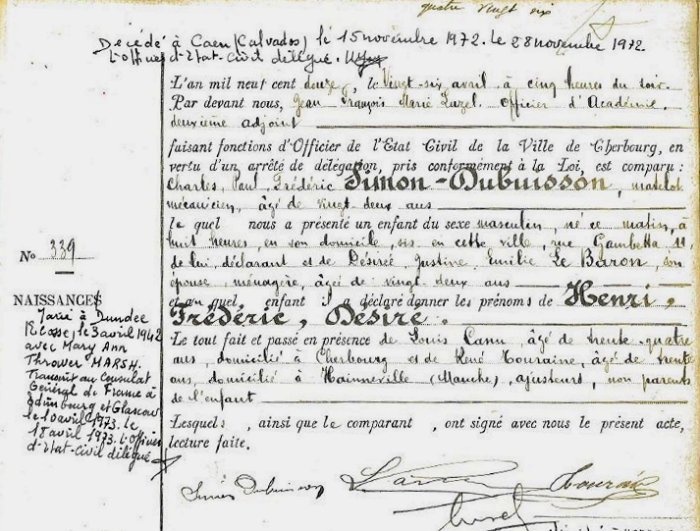 quatre vingt six
Décédé à Caen (Calvados) le 15 novembre 1972. le 28 novembre 1972.
L'officier d'Etat-Civil délégué.
L'an mil neuf cent douze, le Vingt-six avril à cinq heures du soir.
Par devant nous, Jean François Marie Officier d'Académie,
deuxième adjoint
faisant fonctions d'Officier de l'Etat Civil de la Ville de Cherbourg, en
vertu d'un arrêté de délégation, pris conformément à la Loi, est comparu :
Charles Paul Frédéric Simon-Dubuisson, matelot
mécanicien, âgé de vingt deux ans
le quel nous a présenté un enfant du sexe masculin, né ce matin, à
huit heures, en son domicile, sis en cette ville, rue Gambetta 11
de lui déclarant et de Désirée Justine Emilie Le Baron, son
épouse ménagère, âgée de vingt deux ans
et au quel enfant il a déclaré donner les prénoms de Henri,
Frédéric, Désiré.
Le tout fait et passé en présence de Louis Canu, âgé de trente quatre
ans, domicilié à Cherbourg et de René Touraine, âgé de trente
ans, domicilié à Hainneville (Manche), ajusteurs, non parents
de l'enfant
Lesquels, ainsi que le comparant, ont signé avec nous le présent acte,
lecture faite.
Simon Dubuisson
No 339
NAISSANCES
Marié à Dundee
(Ecosse), le 3 avril 1942
avec Mary Ann
Thrower MARSH.
Transmit au Consulat
Général de France à
Edimbourg et Glascow
le 10 avril 1973. le
18 avril 1973. L'officier
d'Etat-Civil délégué